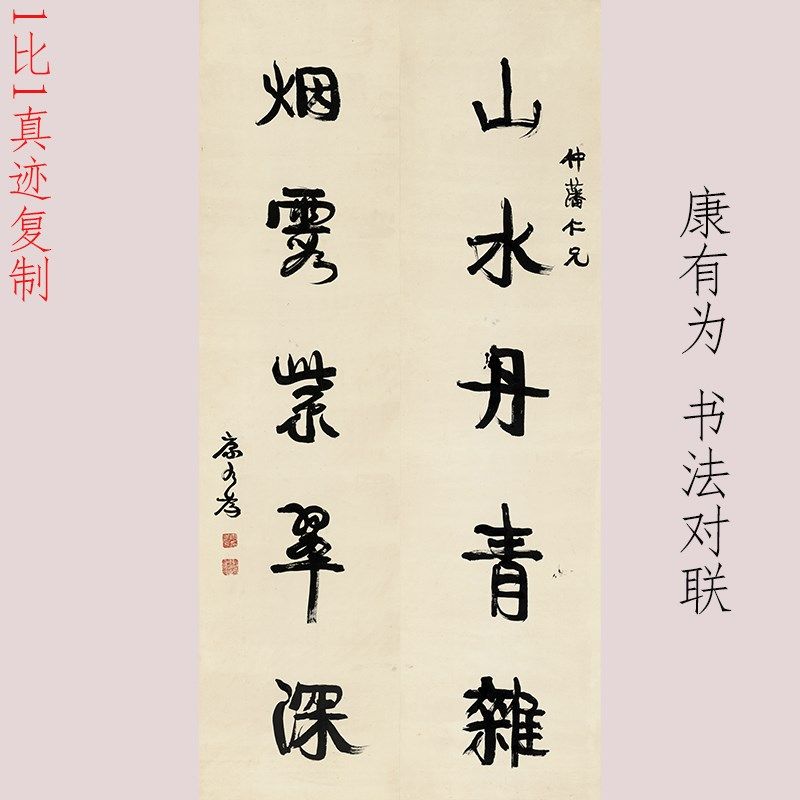 1比1真迹复制
康有为 书法对联
仲藩仁兄
山水丹青雜
烟雲紫翠深
康有為